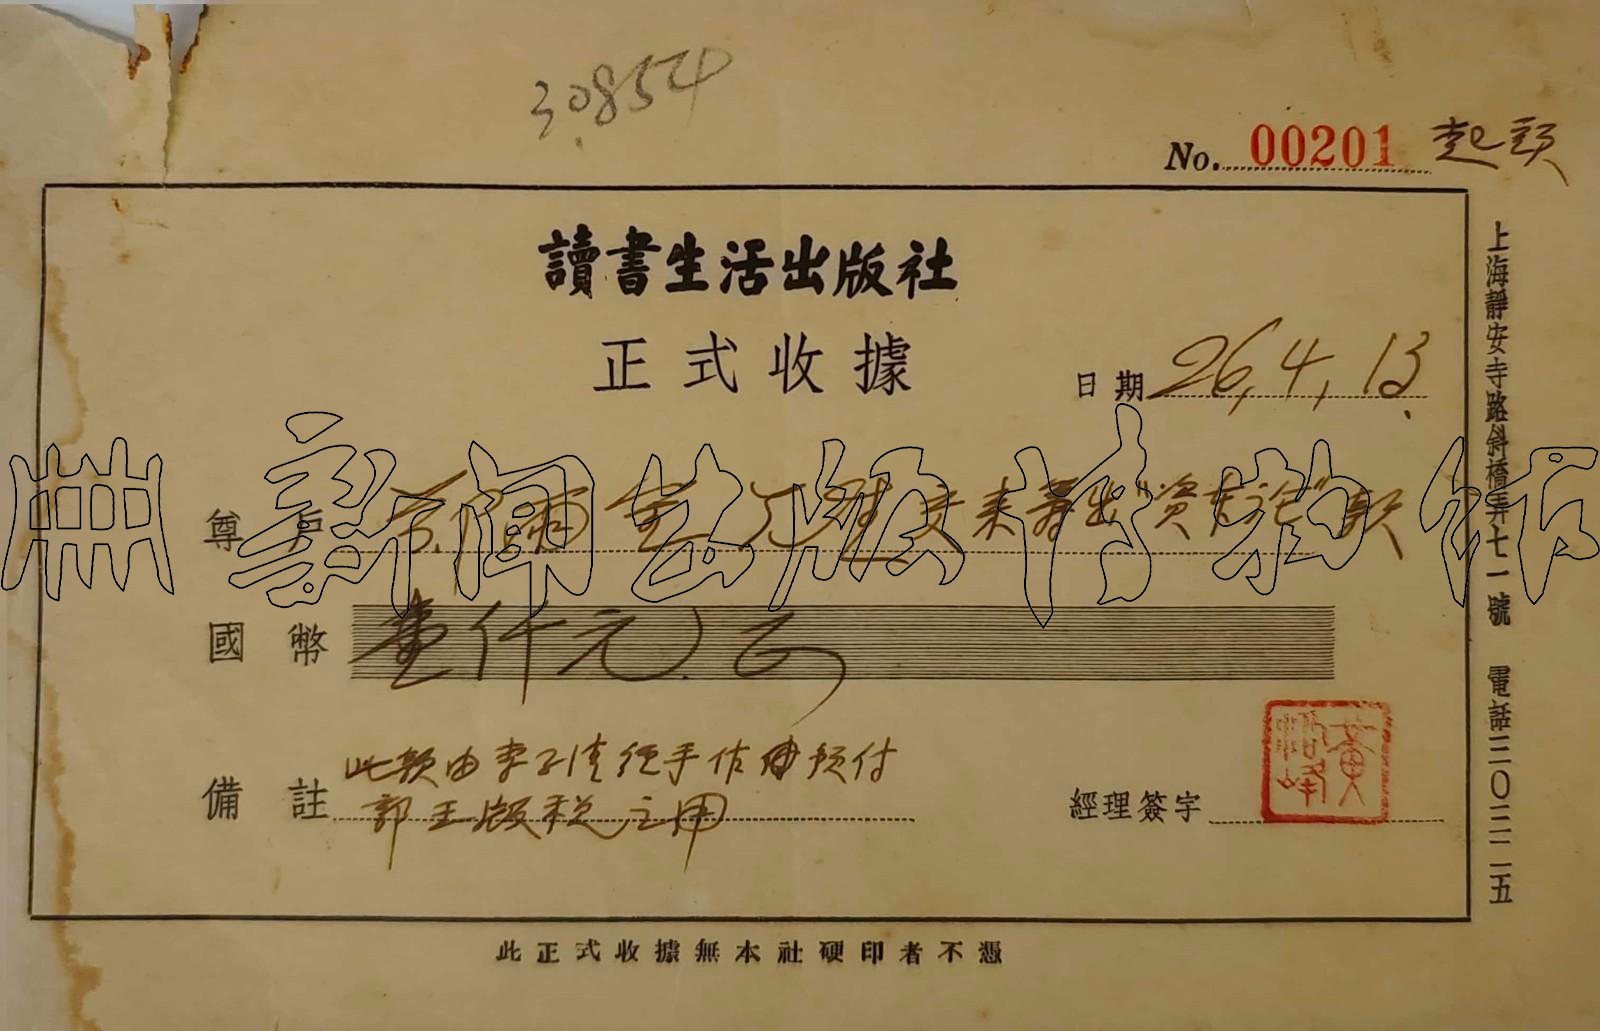 30854
No. 00201 起頭
讀書生活出版社
正式收據
日期 26, 4, 13.
尊戶 來籌出"資本論"款
國幣 壹仟元.正
備註 此款由李子清經手作為預付
郭王版稅之用
經理簽字 黃洛峰
此正式收據無本社硬印者不憑
上海靜安寺路斜橋弄七一號 電話三〇二二五
新聞出版博物館